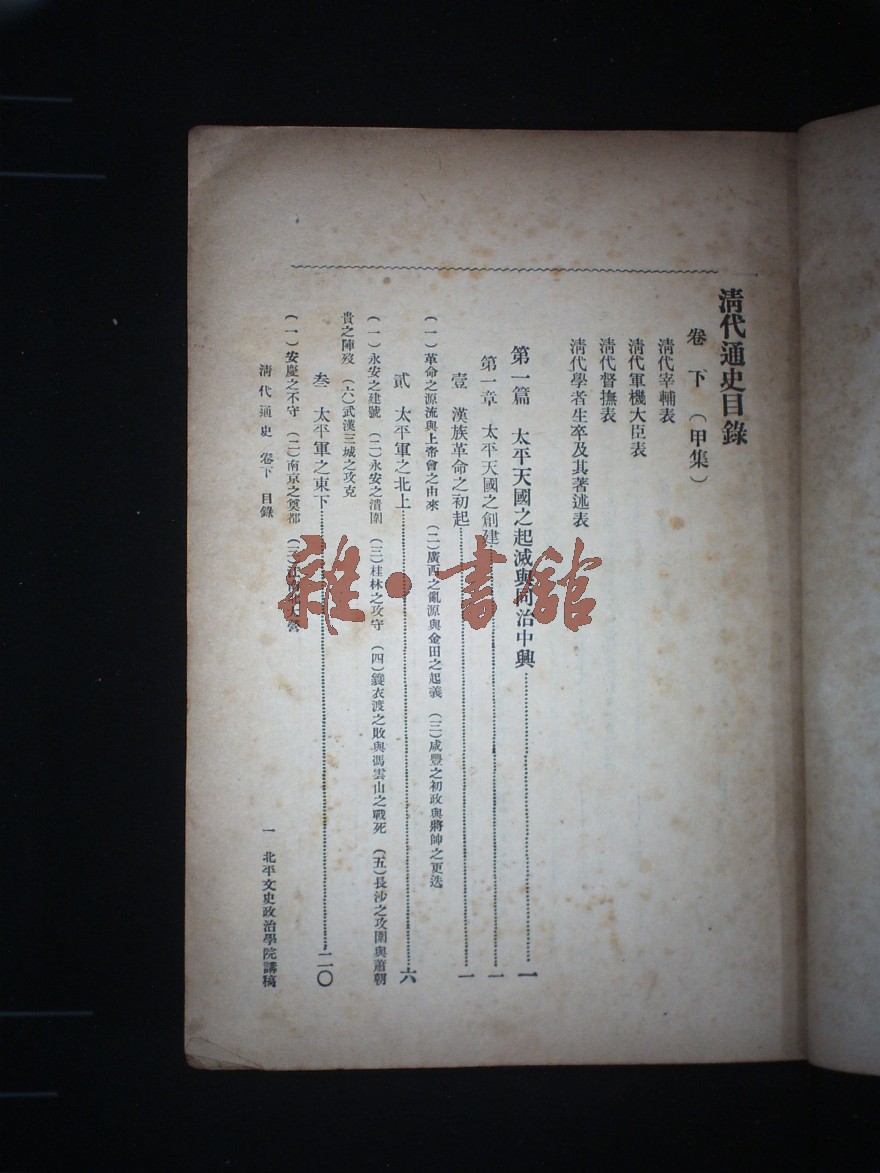 清代通史目錄
卷下（甲集）
清代宰輔表
清代軍機大臣表
清代督撫表
清代學者生卒及其著述表
第一篇 太平天國之起滅與同治中興……一
第一章 太平天國之創建……一
壹 漢族革命之初起……一
（一）革命之源流與上帝會之由來 （二）廣西之亂源與金田之起義 （三）咸豐之初政與將帥之更迭
貳 太平軍之北上……六
（一）永安之建號 （二）永安之潰圍 （三）桂林之攻守 （四）簑衣渡之敗與馮雲山之戰死 （五）長沙之攻圍與蕭朝
貴之陣歿 （六）武漢三城之攻克
叁 太平軍之東下……二〇
（一）安慶之不守 （二）南京之奠都 （三）江南北大營
清代通史 卷下 目錄
一 北平文史政治學院講稿
雜·書館